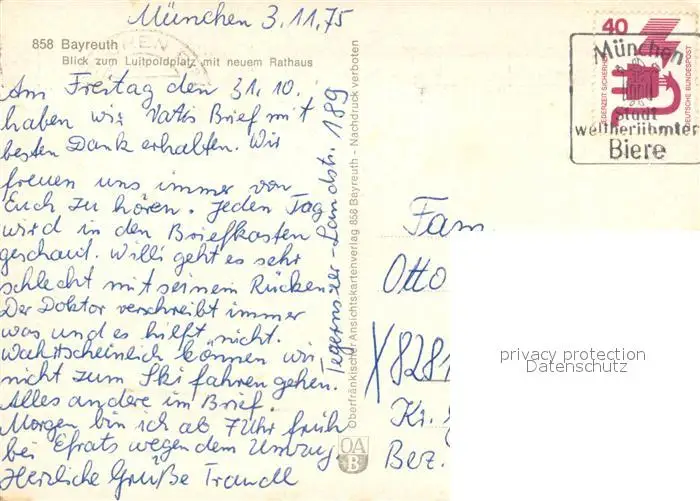 München 3.11.75
858 Bayreuth
Blick zum Luitpoldplatz mit neuem Rathaus
Am Freitag den 31.10.
haben wir Vatis Brief mit
besten Dank erhalten. Wir
freuen uns immer von
Euch zu hören. Jeden Tag
wird in den Briefkasten
geschaut. Willi geht es sehr
schlecht mit seinem Rücken.
Der Doktor verschreibt immer
was und es hilft nicht.
Wahrtscheinlich können wir
nicht zum Ski fahren gehen.
Alles andere im Brief.
Morgen bin ich ab 7 Uhr früh
bei Efrats wegen dem Umzug.
Herzliche Grüße Traudl
Tegernseer-Landstr. 189
Oberfränkischer Ansichtskartenverlag 858 Bayreuth - Nachdruck verboten
OA
B
40
JEDERZEIT SICHERHEIT
DEUTSCHE BUNDESPOST
München
Stadt
weltberühmter
Biere
Fam.
Otto
X8281
Kr.
Bez.
privacy protection
Datenschutz